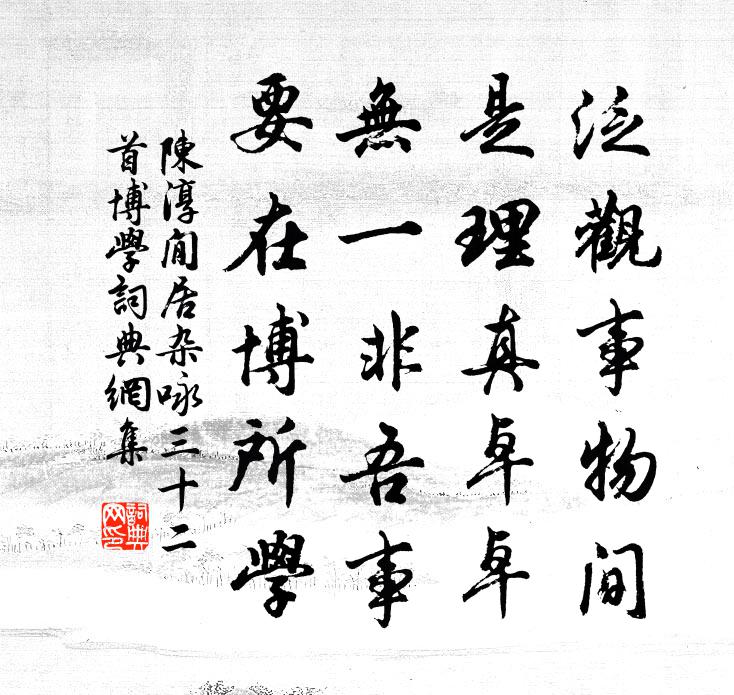 泛觀事物間
是理真卓卓
無一非吾事
要在博所學
陳淳閒居杂咏三十二
首博學詞典網集
詞典网印